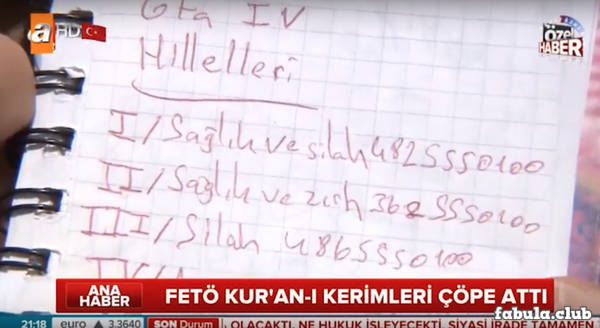 a HD
ÖZEL HABER
Gta IV
Hillelleri
I/Sağlık ve silah 4825550100
II/Sağlık ve zırh 3625550100
III/Silah 4865550100
ANA HABER
FETÖ KUR'AN-I KERİMLERİ ÇÖPE ATTI
fabula.club
21:18 euro 3,3640 SON Durum OLACAKTI, NE HUKUK İŞLEYECEKTİ, SİYASİ İRADE TAMAMEN